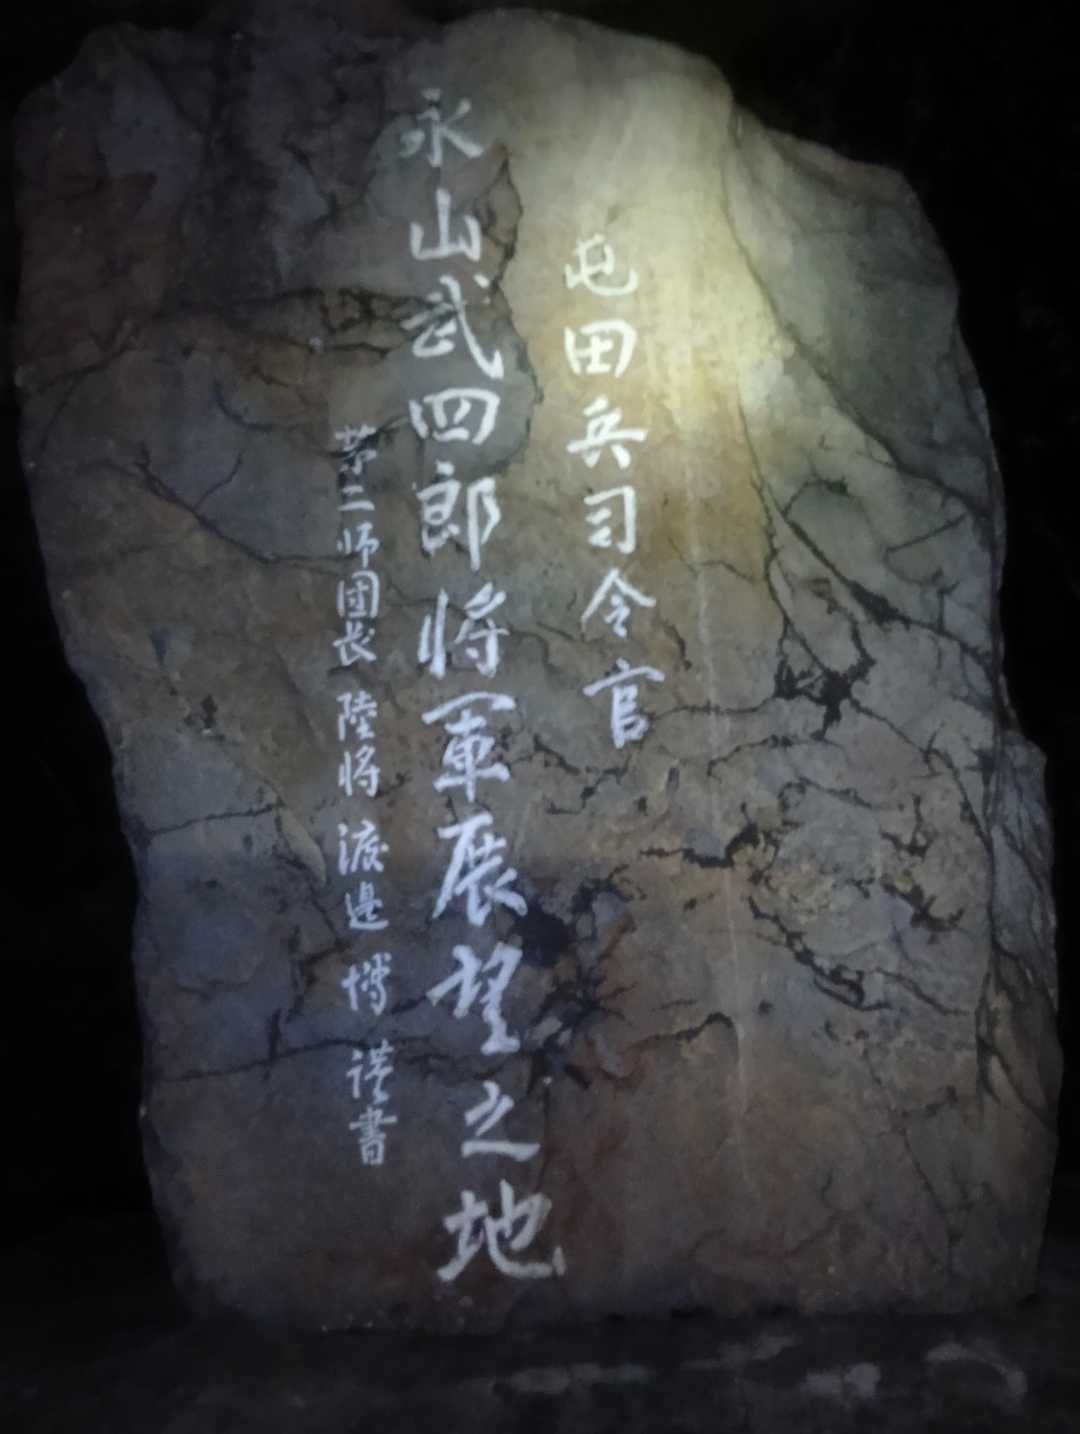 屯田兵司令官
永山武四郎将軍展望之地
第二師団長 陸将 渡邊 博 謹書